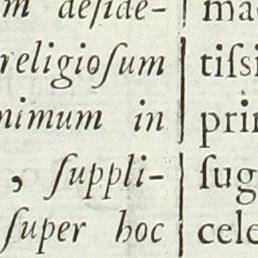 m deside-
religiosum
nimum in
, suppli-
super hoc
ma
tissi
prin
sug
cele